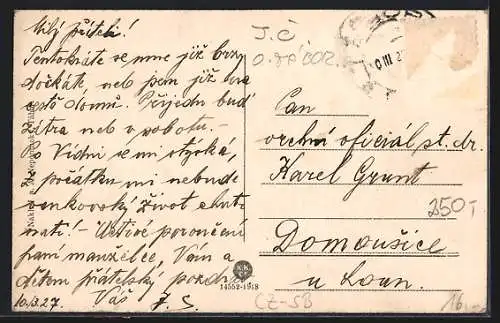 Milý příteli!
Tentokráte se mne již brzy
dočkáte, neb jsem již na
cestě domů. Přijedu buď
zítra neb v sobotu. -
Po Vídni se mi stýská,
z počátku mi nebude
venkovský život chut-
nati! Uctivé poručení
paní manželce, Vám a
dětem přátelský pozdrav
Váš J. S.
10/3.27.
J. Č
Pan
vrchní oficiál st. dr.
Karel Grunt
250,-
Domoušice
u Loun.
N.K.
14552-1918
CZ-SB
16,-